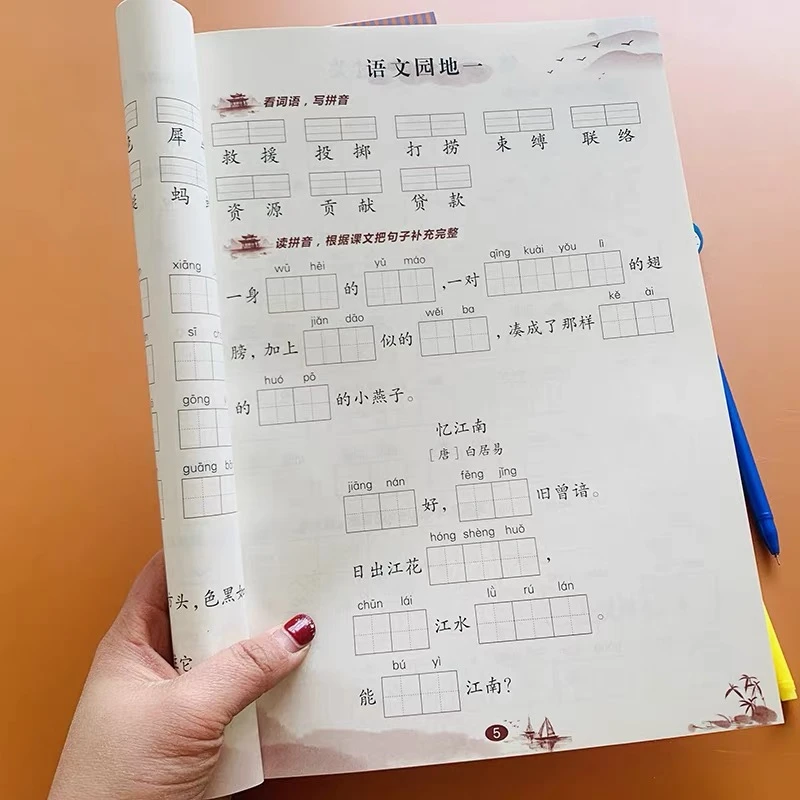 语文园地一
看词语，写拼音
救 援 投 掷 打 捞 束 缚 联 络
资 源 贡 献 贷 款
读拼音，根据课文把句子补充完整
wū hēi yǔ máo qīng kuài yǒu lì
一身 的 ，一对 的翅
jiǎn dāo wěi ba kě ài
膀，加上 似的 ，凑成了那样
huó pō
的 的小燕子。
忆江南
［唐］白居易
jiāng nán fēng jǐng
好， 旧曾谙。
hóng shèng huǒ
日出江花 ，
chūn lái lǜ rú lán
江水 。
bú yì
能 江南？
5
犀
蚂
xiāng
sī
gōng
guāng
头，色黑如
它